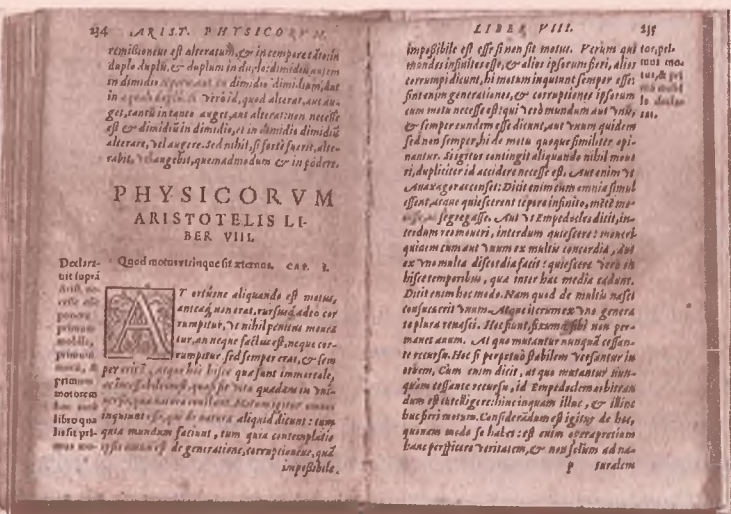 234 ARIST. PHYSICORVM
remissioneue est alteratum, & in tempore
duplo duplū, & duplum in duplo: dimidiū autem
in dimidio dimidio dimidium, aut
in verò id, quod alterat, aut au-
get, tantū in tanto auget, aut alterat: non necesse
est & dimidiū in dimidio, et in dimidio dimidiū
alterare, vel augere. Sed nihil, si fortè fuerit, alte-
rabit, vel augebit, quemadmodum & in pōdere.
PHYSICORVM
ARISTOTELIS LI-
BER VIII.
Quod motus vtrinque sit æternus. CAP. I.
Declara-
uit suprà
primum
mobile,
primum
motorem
libro qua
lis sit pri-
AT ortúsne aliquando est motus,
anteà non erat, rursusq́ adeo cor
rumpitur, vt nihil penitus moueā
tur, an neque factus est, neque cor-
rumpitur sed semper erat, & sem
per erit, atque hic hisce quæ sunt immortale,
quasi vita quædam in vni-
inquiunt de natura aliquid dicunt: tum
quia mundum faciunt, tum quia contemplatio
de generatione, corruptioneue, quā
impossibile
LIBER VIII. 235
impossibile est esse si non sit motus. Verum qui
mondos infinitos esse, & alios ipsorum fieri, alios
corrumpi dicunt, hi motum inquiunt semper esse:
sint enim generationes, & corruptiones ipsorum
cum motu necesse est: qui verò mundum aut vnū,
& semper eundem esse dicunt, aut vnum quidem
sed non semper, hi de motu quoque similiter opi-
nantur. Si igitur contingit aliquando nihil moue
ri, dupliciter id accidere necesse est. Aut enim vt
Anaxagoras censet: Dicit enim cum omnia simul
essent, atque quiescerent tēpore infinito, mētē mo-
segregasse. Aut vt Empedocles dicit, in-
terdum remoueri, interdum quiescere: moueri
quidem cum aut vnum ex multis concordia, aut
ex vno multa discordia facit: quiescere verò in
hisce temporibus, quæ inter hæc media cadunt.
Dicit enim hoc modo. Nam quod de multis nasci
consueuerit vnum. Atque iterum ex vno genera
to plura renasci. Hoc fiunt, fixum sibi non per-
manet æuum. At quo mutantur nunquā cessan-
te recursu. Hoc si perpetuò stabilem versantur in
orbem, Cum enim dicit, at quo mutantur nun-
quàm cessante recursu, id Empedoclem arbitran
dum est intelligere: hinc inquam illuc, & illinc
huc fieri motum. Considerādum est igitur de hoc,
quonam modo se habet: est enim operæpretium
hanc perspicere veritatem, & non solum ad na-
p turalem